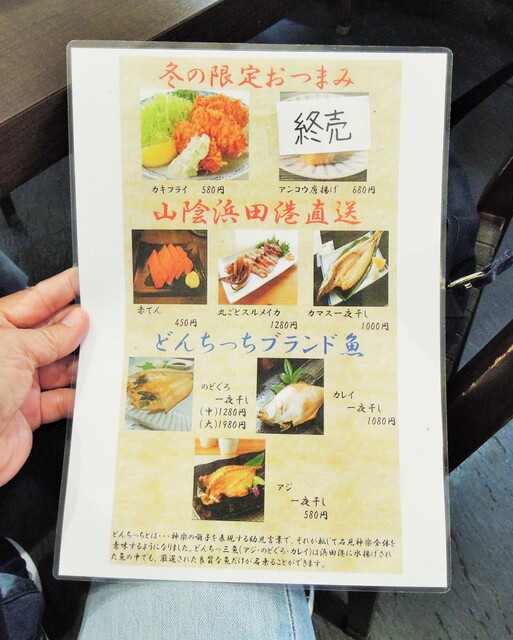 冬の限定おつまみ
終売
カキフライ 580円
アンコウ唐揚げ 680円
山陰浜田港直送
赤てん
450円
丸ごとスルメイカ
1280円
カマス一夜干し
1000円
どんちっちブランド魚
のどぐろ
一夜干し
(中)1280円
(大)1980円
カレイ
一夜干し
1080円
アジ
一夜干し
580円
どんちっちとは・・・神楽の囃子を表現する幼児言葉で、それが転じて石見神楽全体を
意味するようになりました。どんちっち三魚(アジ・のどぐろ・カレイ)は浜田港に水揚げされ
た魚の中でも、厳選された良質な魚だけが名乗ることができます。